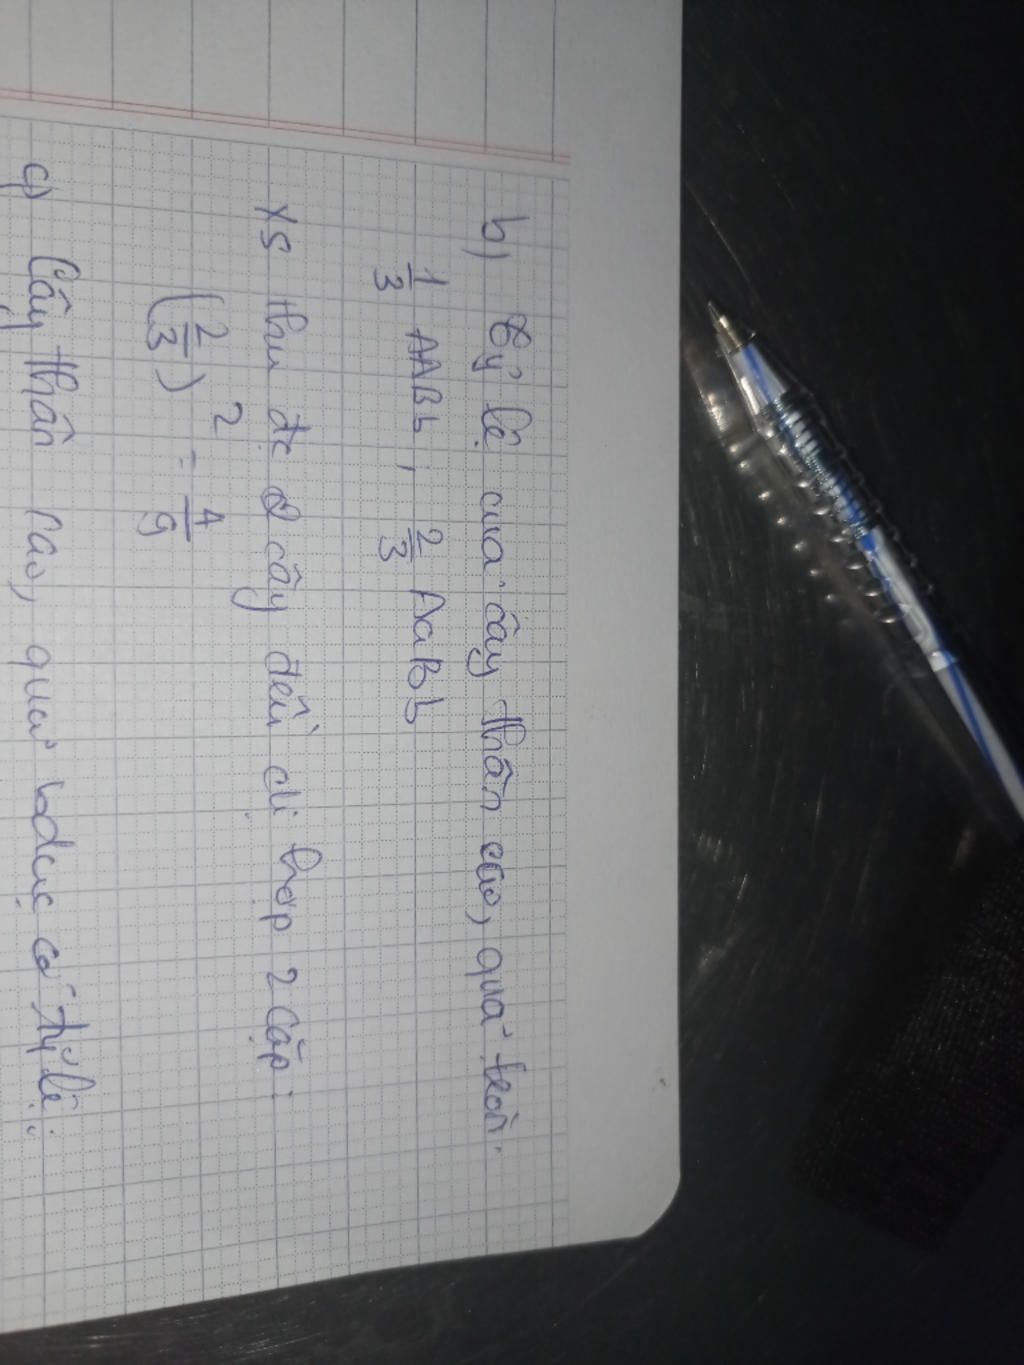 b) Tỷ lệ của cây thân cao, quả tròn.
1/3 AABb, 2/3 AaBb
XS thu đc 2 cây đều dị hợp 2 cặp:
(2/3)² = 4/9
c) Cây thân cao, quả bdục có tỷ lệ: